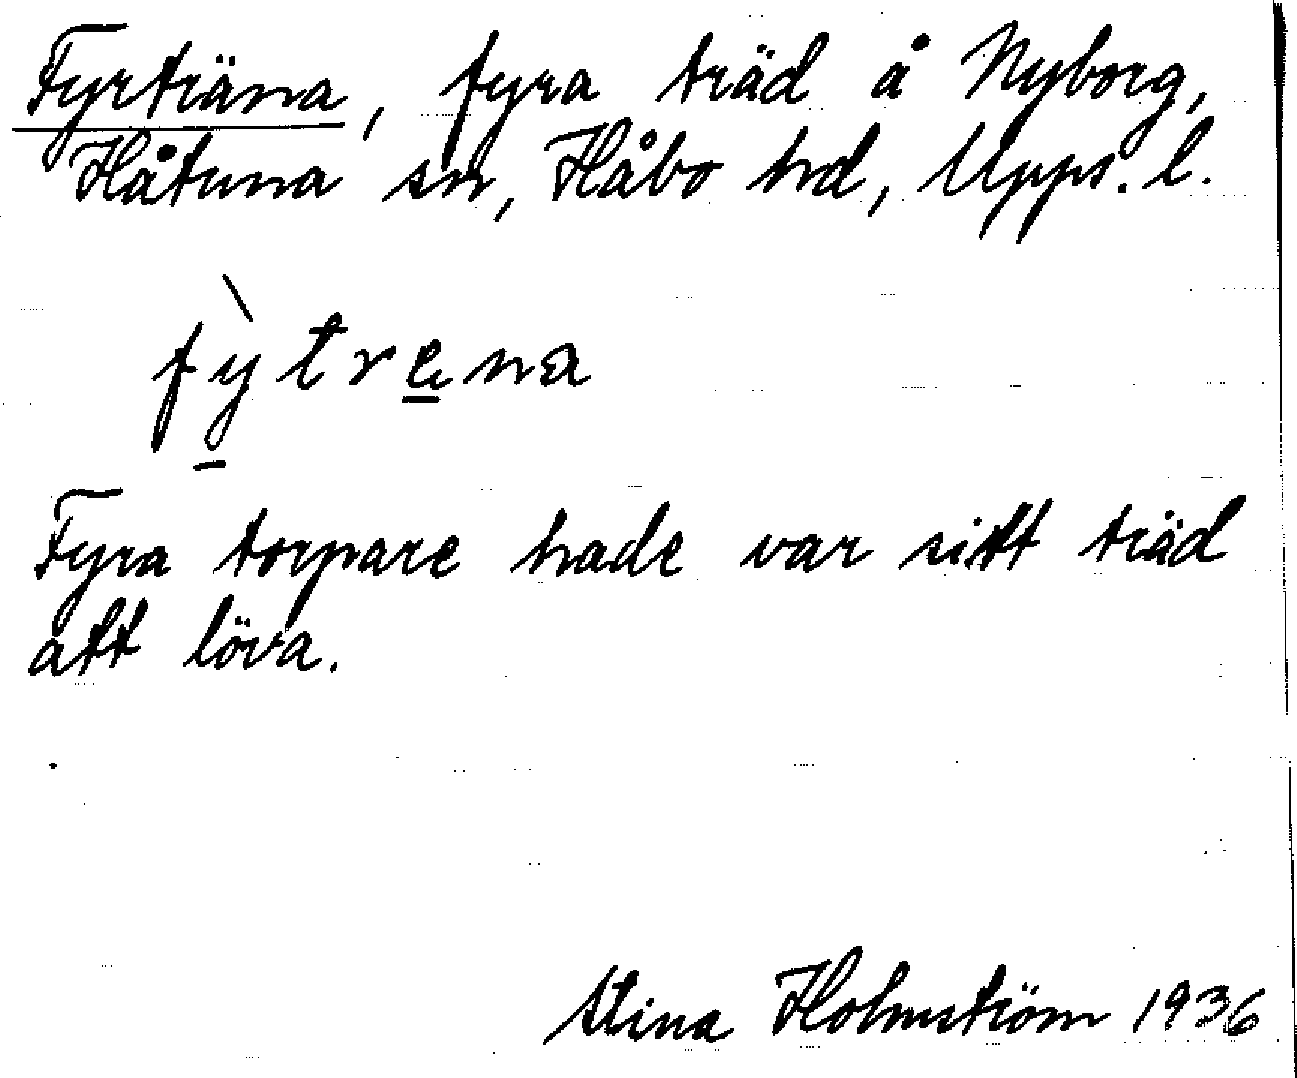 Fyrträna, fyra träd å Nyborg,
Håtuna sn, Håbo hd, Upps. l.
fỳtrena
Fyra torpare hade var sitt träd
att löva.
Stina Holmström 1936